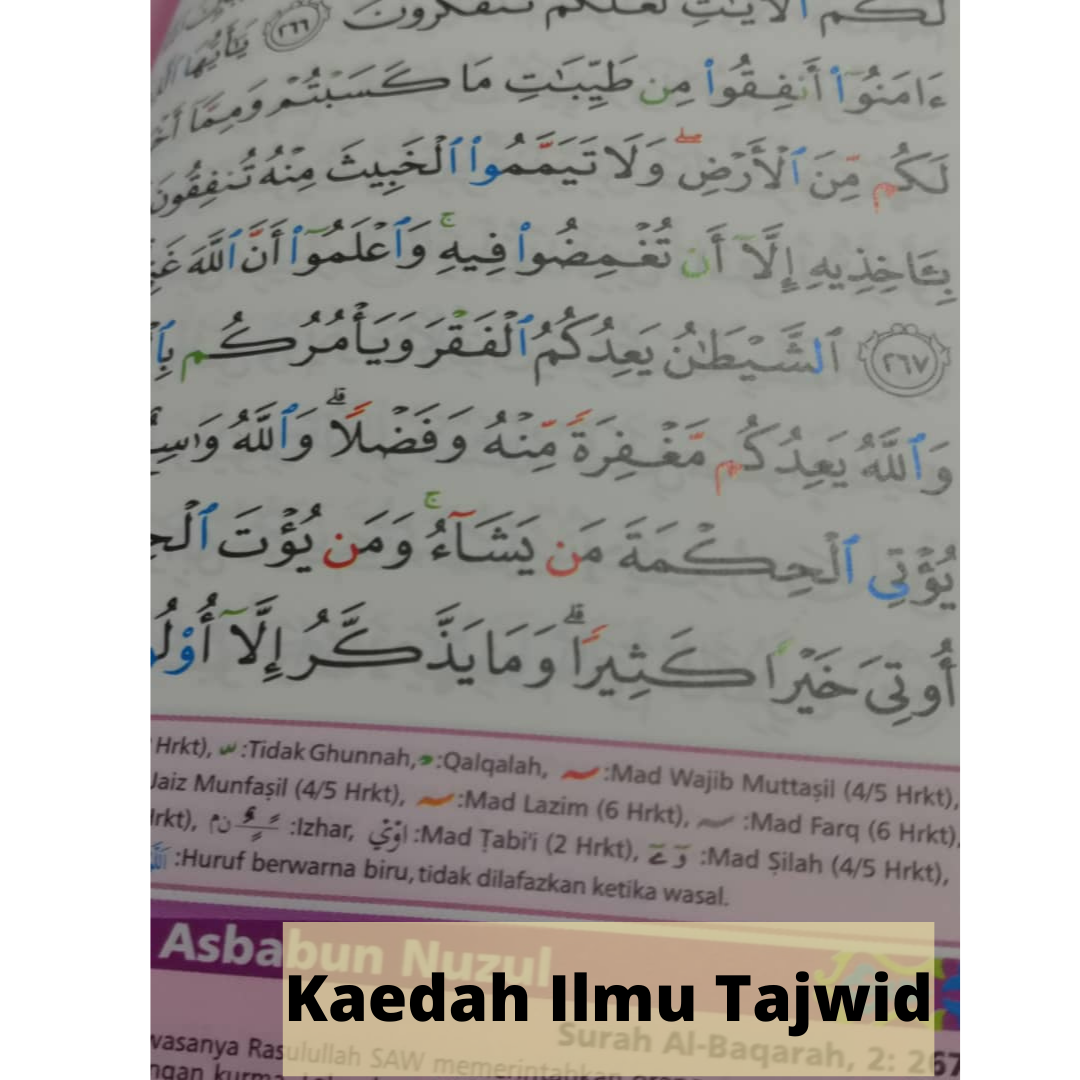 لَكُمُ ٱلْآيَـٰتِ لَعَلَّكُمْ تَتَفَكَّرُونَ ٢٦٦ يَـٰٓأَيُّهَا
ءَامَنُوٓا۟ أَنفِقُوا۟ مِن طَيِّبَـٰتِ مَا كَسَبْتُمْ وَمِمَّآ
لَكُم مِّنَ ٱلْأَرْضِ ۖ وَلَا تَيَمَّمُوا۟ ٱلْخَبِيثَ مِنْهُ تُنفِقُونَ
بِـَٔاخِذِيهِ إِلَّآ أَن تُغْمِضُوا۟ فِيهِ ۚ وَٱعْلَمُوٓا۟ أَنَّ ٱللَّهَ
٢٦٧ ٱلشَّيْطَـٰنُ يَعِدُكُمُ ٱلْفَقْرَ وَيَأْمُرُكُم
وَٱللَّهُ يَعِدُكُم مَّغْفِرَةً مِّنْهُ وَفَضْلًا ۗ وَٱللَّهُ
يُؤْتِى ٱلْحِكْمَةَ مَن يَشَآءُ ۚ وَمَن يُؤْتَ
أُوتِىَ خَيْرًا كَثِيرًا ۗ وَمَا يَذَّكَّرُ إِلَّآ
Hrkt), :Tidak Ghunnah, :Qalqalah, :Mad Wajib Muttaṣil (4/5 Hrkt),
Jaiz Munfaṣil (4/5 Hrkt), :Mad Lazim (6 Hrkt), :Mad Farq (6 Hrkt),
:Izhar, :Mad Ṭabi'i (2 Hrkt), :Mad Ṣilah (4/5 Hrkt),
:Huruf berwarna biru, tidak dilafazkan ketika wasal.
Asbabun Nuzul
Kaedah Ilmu Tajwid
Surah Al-Baqarah, 2: 267
Rasulullah SAW memerintahkan